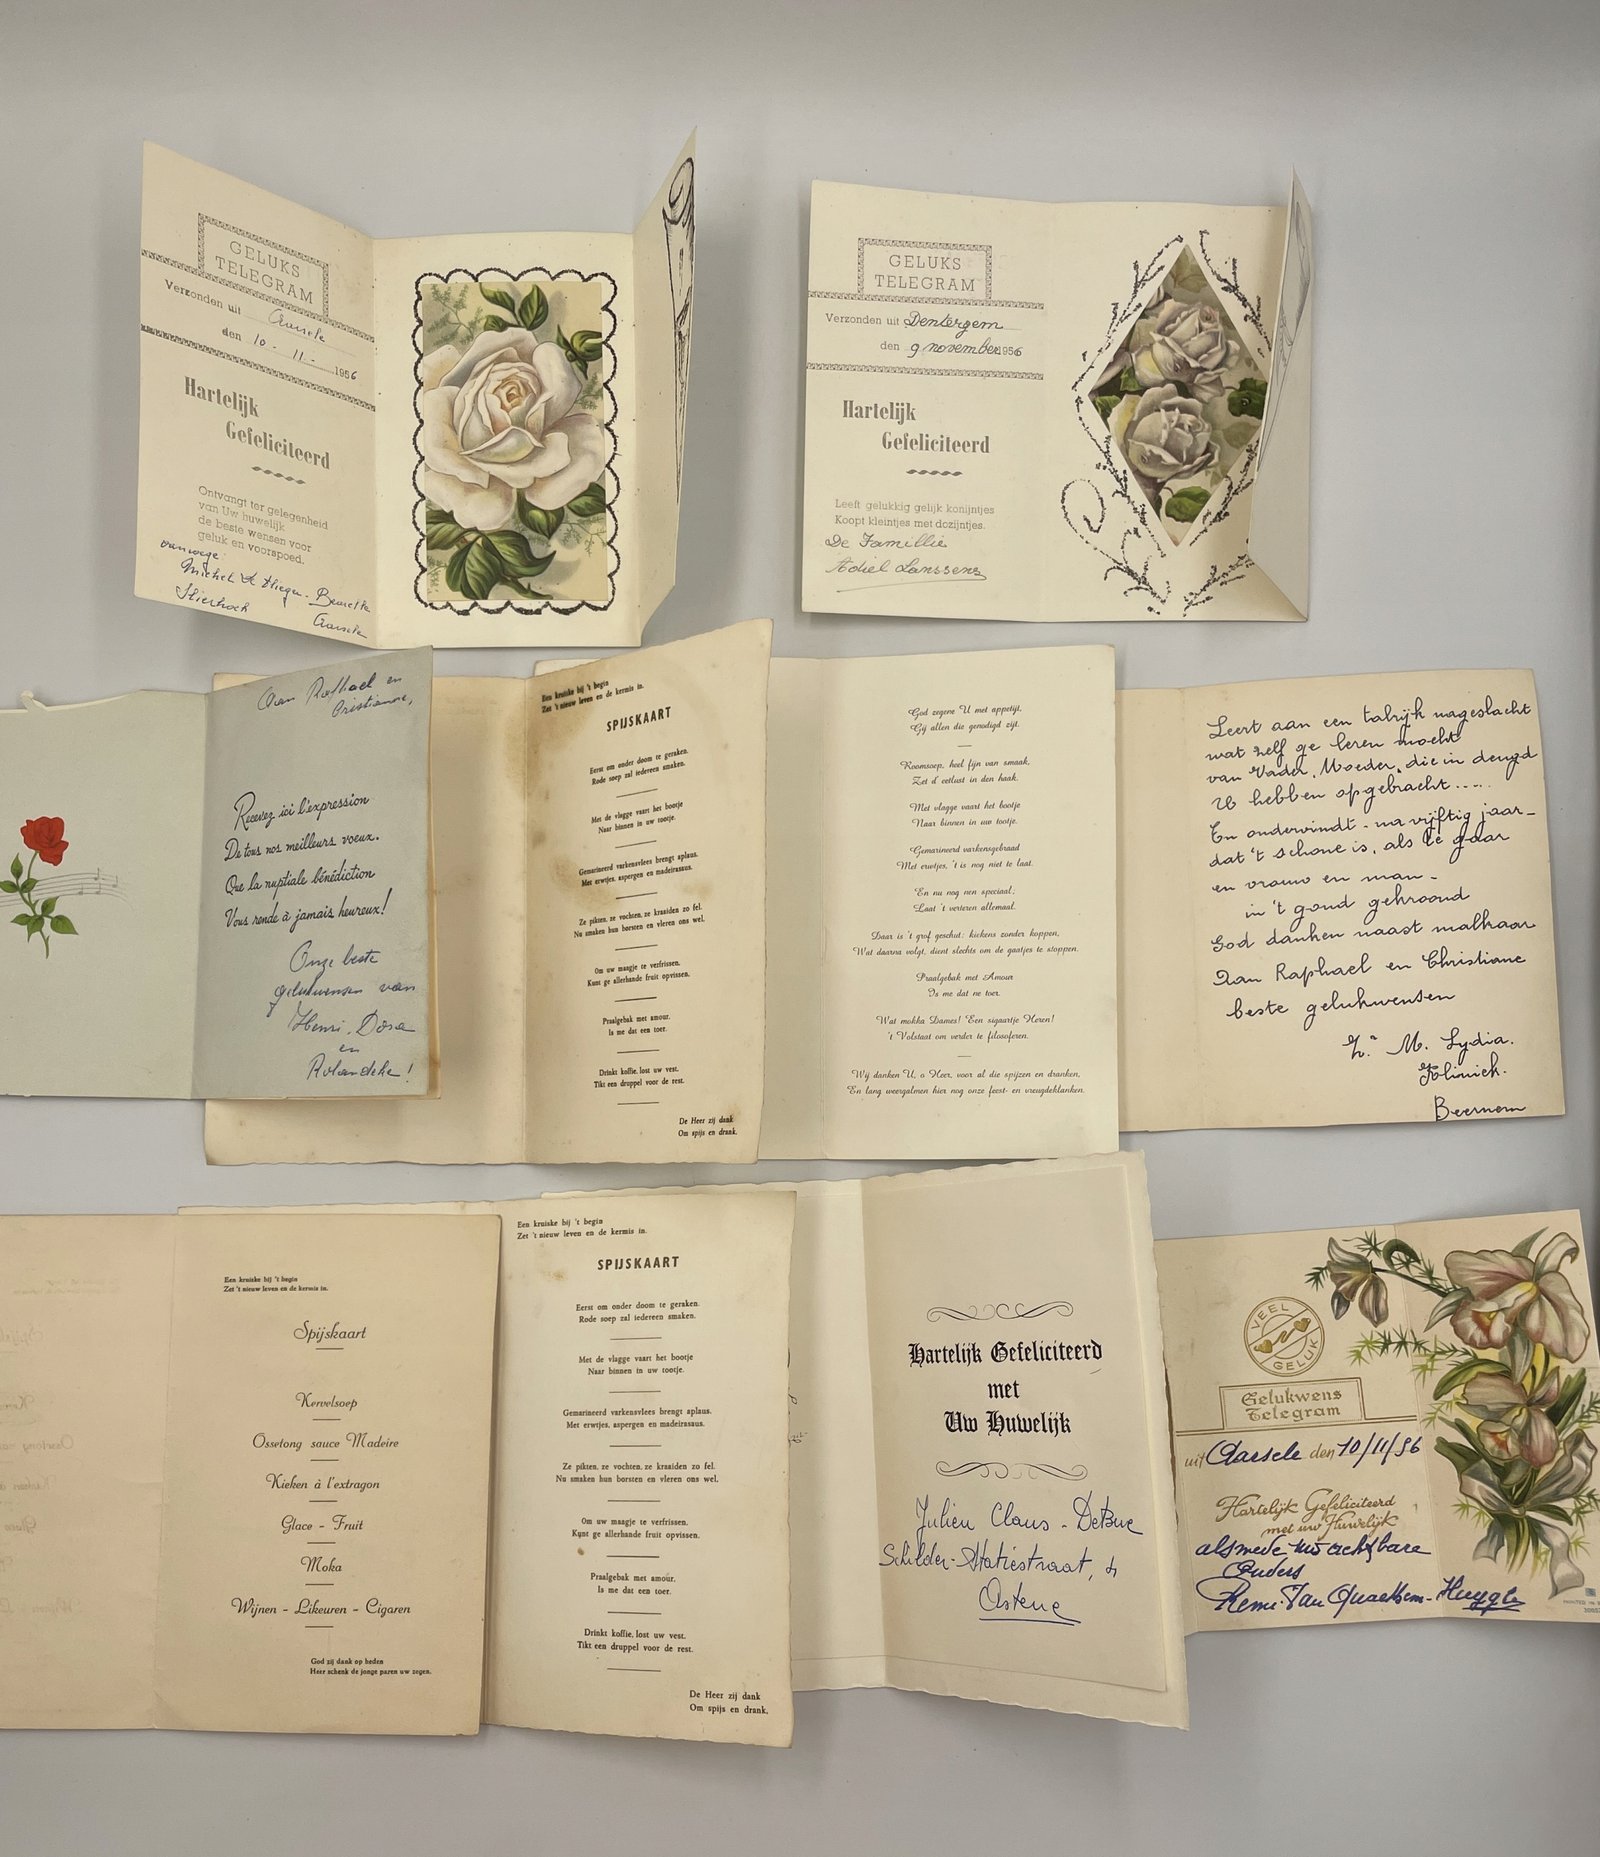 GELUKS
TELEGRAM
Verzonden uit Aarsele
den 10 - 11 - 1956
Hartelijk
Gefeliciteerd
Ontvangt ter gelegenheid
van Uw huwelijk
de beste wensen voor
geluk en voorspoed.
vanwege
Michel
Aarsele
GELUKS
TELEGRAM
Verzonden uit Dentergem
den 9 november 1956
Hartelijk
Gefeliciteerd
Leeft gelukkig gelijk konijntjes
Koopt kleintjes met dozijntjes.
De Famillie
Adiel Lanssens
Aan Raphael en
Cristianne,
Recevez ici l'expression
De tous nos meilleurs voeux.
Que la nuptiale bénédiction
Vous rende à jamais heureux!
Onze beste
gelukwensen van
Henri, Dora
en
Rolandeke!
Een kruiske bij 't begin
Zet 't nieuw leven en de kermis in.
SPIJSKAART
Eerst om onder doom te geraken.
Rode soep zal iedereen smaken.
Met de vlagge vaart het bootje
Naar binnen in uw tootje.
Gemarineerd varkensvlees brengt aplaus.
Met erwtjes, aspergen en madeirasaus.
Ze pikten, ze vochten, ze kraaiden zo fel.
Nu smaken hun borsten en vleren ons wel.
Om uw maagje te verfrissen.
Kunt ge allerhande fruit opvissen.
Praalgebak met amour.
Is me dat een toer.
Drinkt koffie, lost uw vest.
Tikt een druppel voor de rest.
De Heer zij dank
Om spijs en drank.
God zegene U met appetijt,
Gij allen die genodigd zijt.
Roomsoep, heel fijn van smaak,
Zet d' eetlust in den haak.
Met vlagge vaart het bootje
Naar binnen in uw tootje.
Gemarineerd varkensgebraad
Met erwtjes, 't is nog niet te laat.
En nu nog een speciaal;
Laat 't verteren allemaal.
Daar is 't grof geschut: kiekens zonder koppen,
Wat daarna volgt, dient slechts om de gaatjes te stoppen.
Praalgebak met Amour
Is me dat ne toer.
Wat mokka Dames! Een sigaartje Heren!
't Volstaat om verder te filosoferen.
Wij danken U, o Heer, voor al die spijzen en dranken,
En lang weergalmen hier nog onze feest- en vreugdeklanken.
Leert aan een talrijk nageslacht
wat zelf ge leren mocht
van Vader, Moeder, die in deugd
U hebben opgebracht.....
En ondervindt - na vijftig jaar -
dat 't schone is, als te gaar
en vrouw en man -
in 't goud gekroond
God danken naast malkaar
Aan Raphael en Christiane
beste gelukwensen
Zr. M. Lydia.
Kliniek.
Beernem
Een kruiske bij 't begin
Zet 't nieuw leven en de kermis in.
Spijskaart
Kervelsoep
Ossetong sauce Madeire
Kieken à l'extragon
Glace - Fruit
Moka
Wijnen - Likeuren - Cigaren
God zij dank op heden
Heer schenk de jonge paren uw zegen.
Een kruiske bij 't begin
Zet 't nieuw leven en de kermis in.
SPIJSKAART
Eerst om onder doom te geraken.
Rode soep zal iedereen smaken.
Met de vlagge vaart het bootje
Naar binnen in uw tootje.
Gemarineerd varkensvlees brengt aplaus.
Met erwtjes, aspergen en madeirasaus.
Ze pikten, ze vochten, ze kraaiden zo fel.
Nu smaken hun borsten en vleren ons wel.
Om uw maagje te verfrissen.
Kunt ge allerhande fruit opvissen.
Praalgebak met amour.
Is me dat een toer.
Drinkt koffie, lost uw vest.
Tikt een druppel voor de rest.
De Heer zij dank
Om spijs en drank.
Hartelijk Gefeliciteerd
met
Uw Huwelijk
Julien Claus - DeBue
Schilder - Statiestraat,
Astene
VEEL
GELUK
Gelukwens
Telegram
uit Aarsele den 10/11/56
Hartelijk Gefeliciteerd
met uw Huwelijk
alsmede uw achtbare
Ouders
Remi Van Quaethem - Huyghe
PRINTED IN